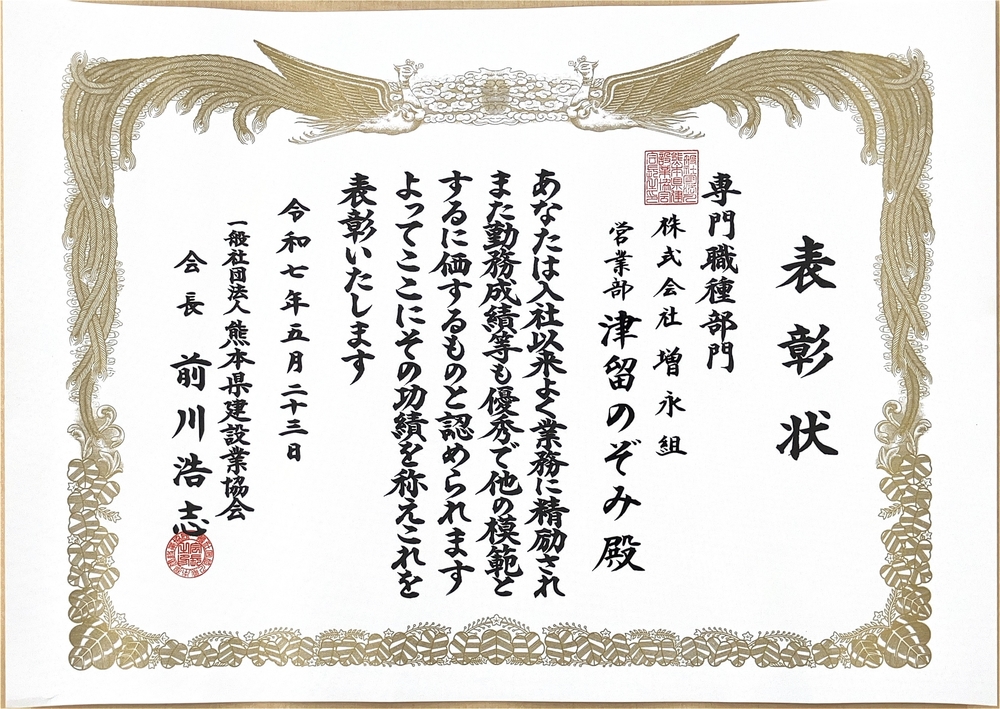 表彰状
専門職種部門
株式会社 増永組
営業部 津留のぞみ殿
あなたは入社以来よく業務に精励され
また勤務成績等も優秀で他の模範と
するに価するものと認められます
よってここにその功績を称えこれを
表彰いたします
令和七年五月二十三日
一般社団法人 熊本県建設業協会
会長 前川浩志